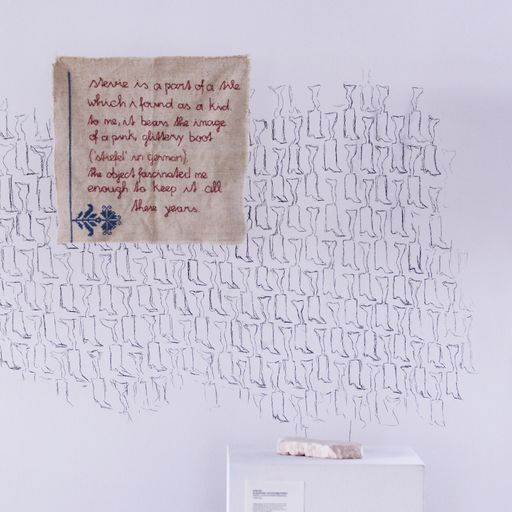 stevie is a part of a tile
which i found as a kid.
to me, it bears the image
of a pink, glittery boot
('stiefel' in german).
the object fascinated me
enough to keep it all
these years.